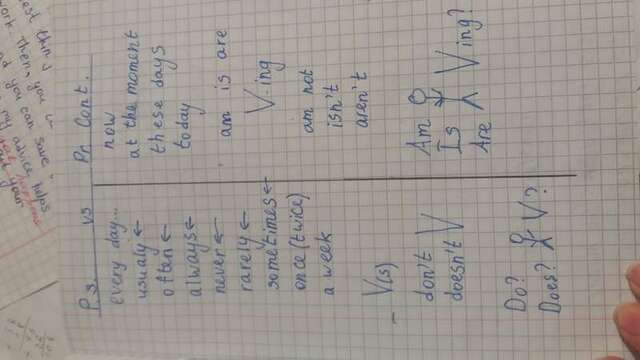 P.S. vs Pr Cont.
every day...
usualy ←
often ←
always ←
never ←
rarely ←
sometimes ←
once (twice)
a week
V(s)
don't V
doesn't
Do? V?
Does?
now
at the moment
these days
today
am is are
V-ing
am not
isn't
aren't
Am
Is Ving?
Are